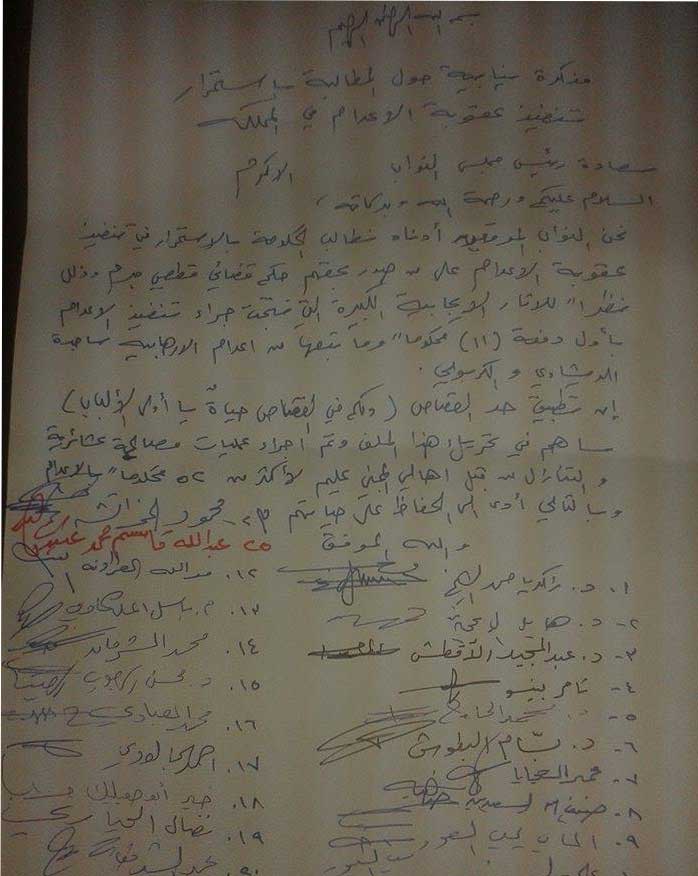 بسم الله الرحمن الرحيم
مذكرة نيابية حول المطالبة بإستمرار
تنفيذ عقوبة الاعدام في المملكة
سعادة رئيس مجلس النواب الاكرم
السلام عليكم ورحمة الله وبركاته ،
نحن النواب الموقعين أدناه نطالب الحكومة بالاستمرار في تنفيذ
عقوبة الاعدام على من صدر بحقهم حكم قضائي قطعي مبرم وذلك
نظراً للاثار الايجابية الكبيرة التي نتجت جراء تنفيذ الاعدام
بأول دفعة (١١) محكوماً وما تبعها من اعدام الارهابية ساجدة
الريشاوي و الكربولي .
إن تطبيق حد القصاص (ولكم في القصاص حياةٌ يا أولي الألباب)
ساهم في تحريك هذا الملف وتم اجراء عمليات مصالحة عشائرية
والتنازل من قبل اهالي المجني عليهم لأكثر من ٥٢ محكوماً بالاعدام
وبالتالي أدى الى الحفاظ على حياتهم
٢٣- محمود الخرابشة
والله الموفق
٢٥ عبدالله قاسم محمد عبيدات
١. د. زكريا محمد الشيخ
٢- د. هايل الدعجة
٣- د. عبدالمجيد الأقطش
٤- تامر بينو
٥- د. محمد الحاج
٦- د. بسّام البطوش
٧-
٨-
٩-
١٢. عبدالله
١٣. م. باسل
١٤. محمد
١٥. د. محسن الرجوب
١٦. محمد العبادي
١٧. احمد الجالودي
١٨. خير أبو صعيليك
١٩. نضال الحياري
٢٠.